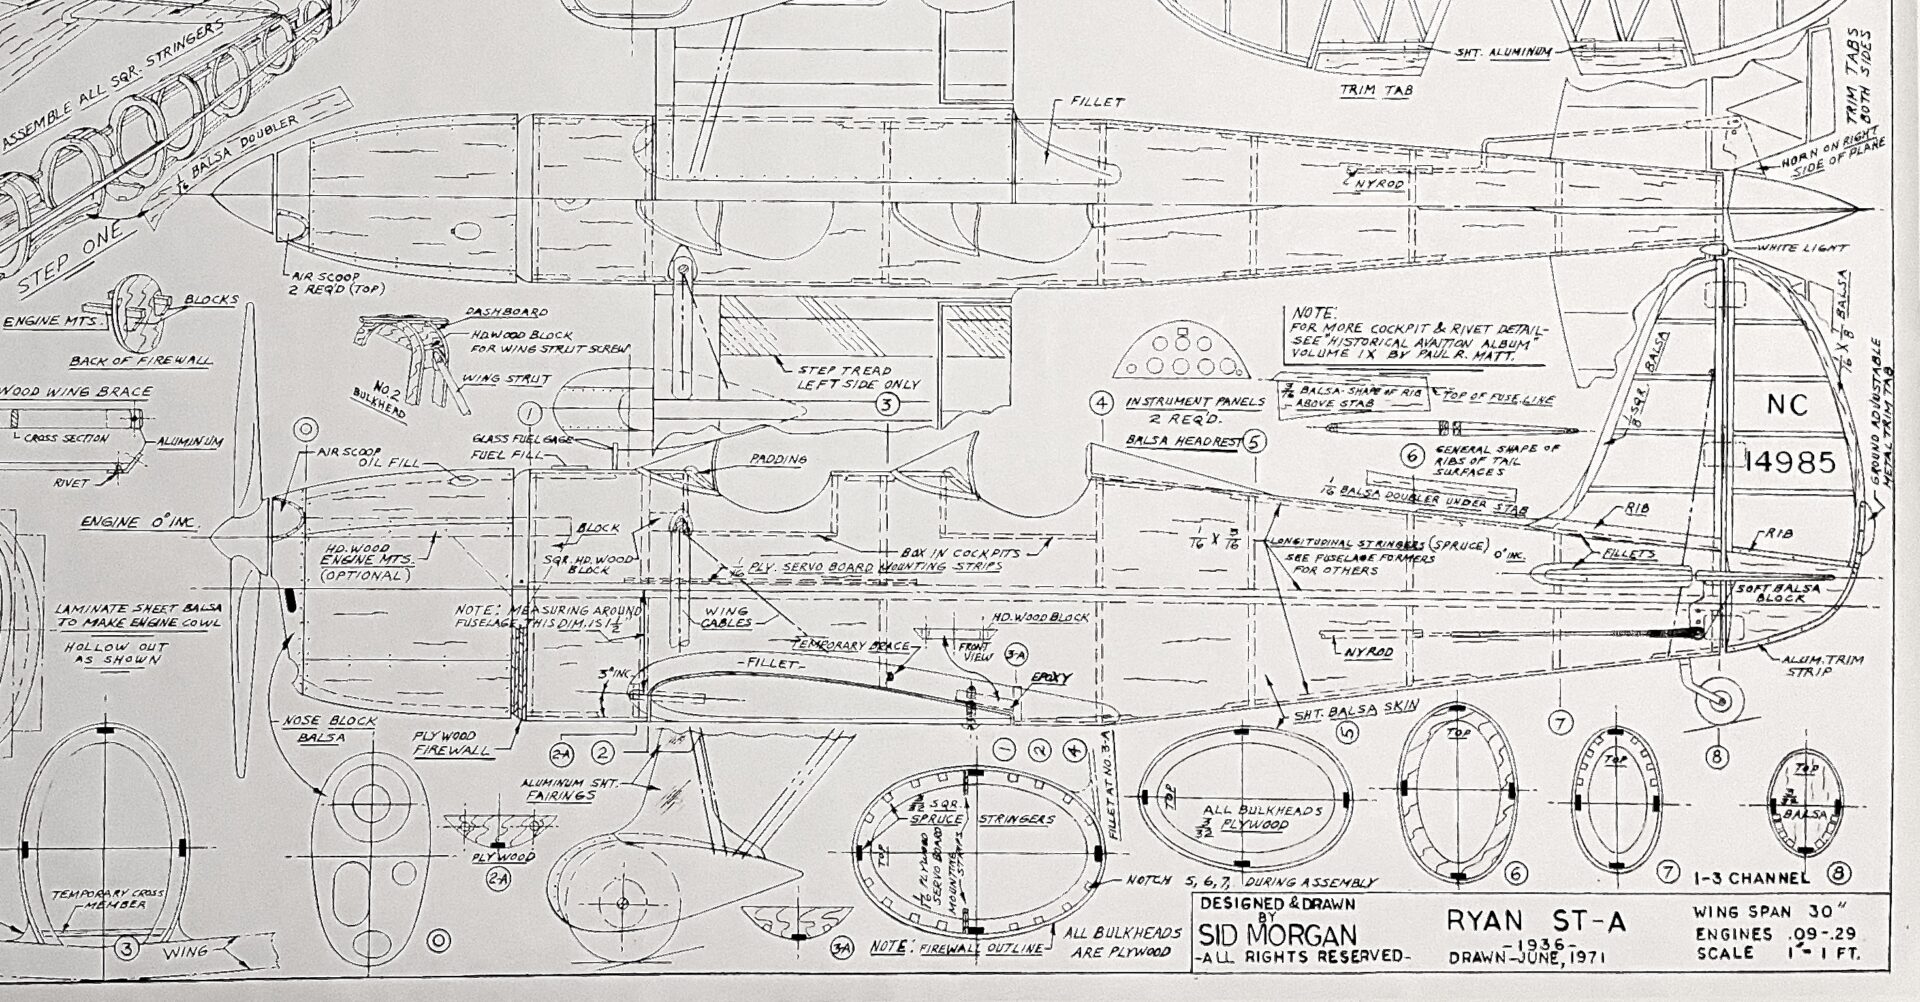 ASSEMBLE ALL SQR. STRINGERS
1/16 BALSA DOUBLER
STEP ONE
SHT. ALUMINUM
TRIM TAB
TRIM TABS
BOTH SIDES
FILLET
HORN ON RIGHT
SIDE OF PLANE
NYROD
WHITE LIGHT
AIR SCOOP
2 REQ'D (TOP)
BLOCKS
ENGINE MTS.
BACK OF FIREWALL
DASHBOARD
HD.WOOD BLOCK
FOR WING STRUT SCREW
WING STRUT
NO. 2
BULKHEAD
STEP TREAD
LEFT SIDE ONLY
NOTE:
FOR MORE COCKPIT & RIVET DETAIL-
SEE "HISTORICAL AVAITION ALBUM"
VOLUME IX BY PAUL R. MATT.
1/16 X 1/8 BALSA
GROUND ADJUSTABLE
METAL TRIM TAB
WOOD WING BRACE
CROSS SECTION
ALUMINUM
RIVET
3/16 BALSA-SHAPE OF RIB
ABOVE STAB
TOP OF FUSE. LINE
1/8 SQR. BALSA
NC
14985
INSTRUMENT PANELS
2 REQ'D.
BALSA HEADREST
1
3
4
5
6
GENERAL SHAPE OF
RIBS OF TAIL
SURFACES
O
AIR SCOOP
OIL FILL
GLASS FUEL GAGE
FUEL FILL
PADDING
1/16 BALSA DOUBLER UNDER STAB
RIB
RIB
ENGINE 0° INC.
HD. WOOD
ENGINE MTS.
(OPTIONAL)
BLOCK
SQR. HD. WOOD
BLOCK
BOX IN COCKPITS
1/16 PLY. SERVO BOARD MOUNTING STRIPS
1/16 X 3/16
LONGITUDINAL STRINGERS (SPRUCE)
SEE FUSELAGE FORMERS
FOR OTHERS
0° INC.
FILLETS
SOFT BALSA
BLOCK
LAMINATE SHEET BALSA
TO MAKE ENGINE COWL
HOLLOW OUT
AS SHOWN
NOTE: MEASURING AROUND
FUSELAGE, THIS DIM. IS 1 1/2"
WING
CABLES
HD. WOOD BLOCK
TEMPORARY BRACE
FRONT
VIEW
3-A
NYROD
ALUM. TRIM
STRIP
-FILLET-
3° INC.
EPOXY
SHT. BALSA SKIN
NOSE BLOCK
BALSA
PLYWOOD
FIREWALL
2-A
2
1
2
4
5
7
8
ALUMINUM SHT.
FAIRINGS
FILLET AT NO. 3-A
TOP
TOP
TOP
TOP
TOP
3/32 SQR.
SPRUCE STRINGERS
1/16 PLYWOOD
SERVO BOARD
MOUNTING
STRIPS
ALL BULKHEADS
3/32 PLYWOOD
3/32
BALSA
PLYWOOD
2-A
NOTCH 5, 6, 7, DURING ASSEMBLY
6
7
1-3 CHANNEL
8
TEMPORARY CROSS
MEMBER
3
WING
O
3A
NOTE: FIREWALL OUTLINE
ALL BULKHEADS
ARE PLYWOOD
DESIGNED & DRAWN
BY
SID MORGAN
-ALL RIGHTS RESERVED-
RYAN ST-A
-1936-
DRAWN-JUNE, 1971
WING SPAN 30"
ENGINES .09-.29
SCALE 1"-1 FT.